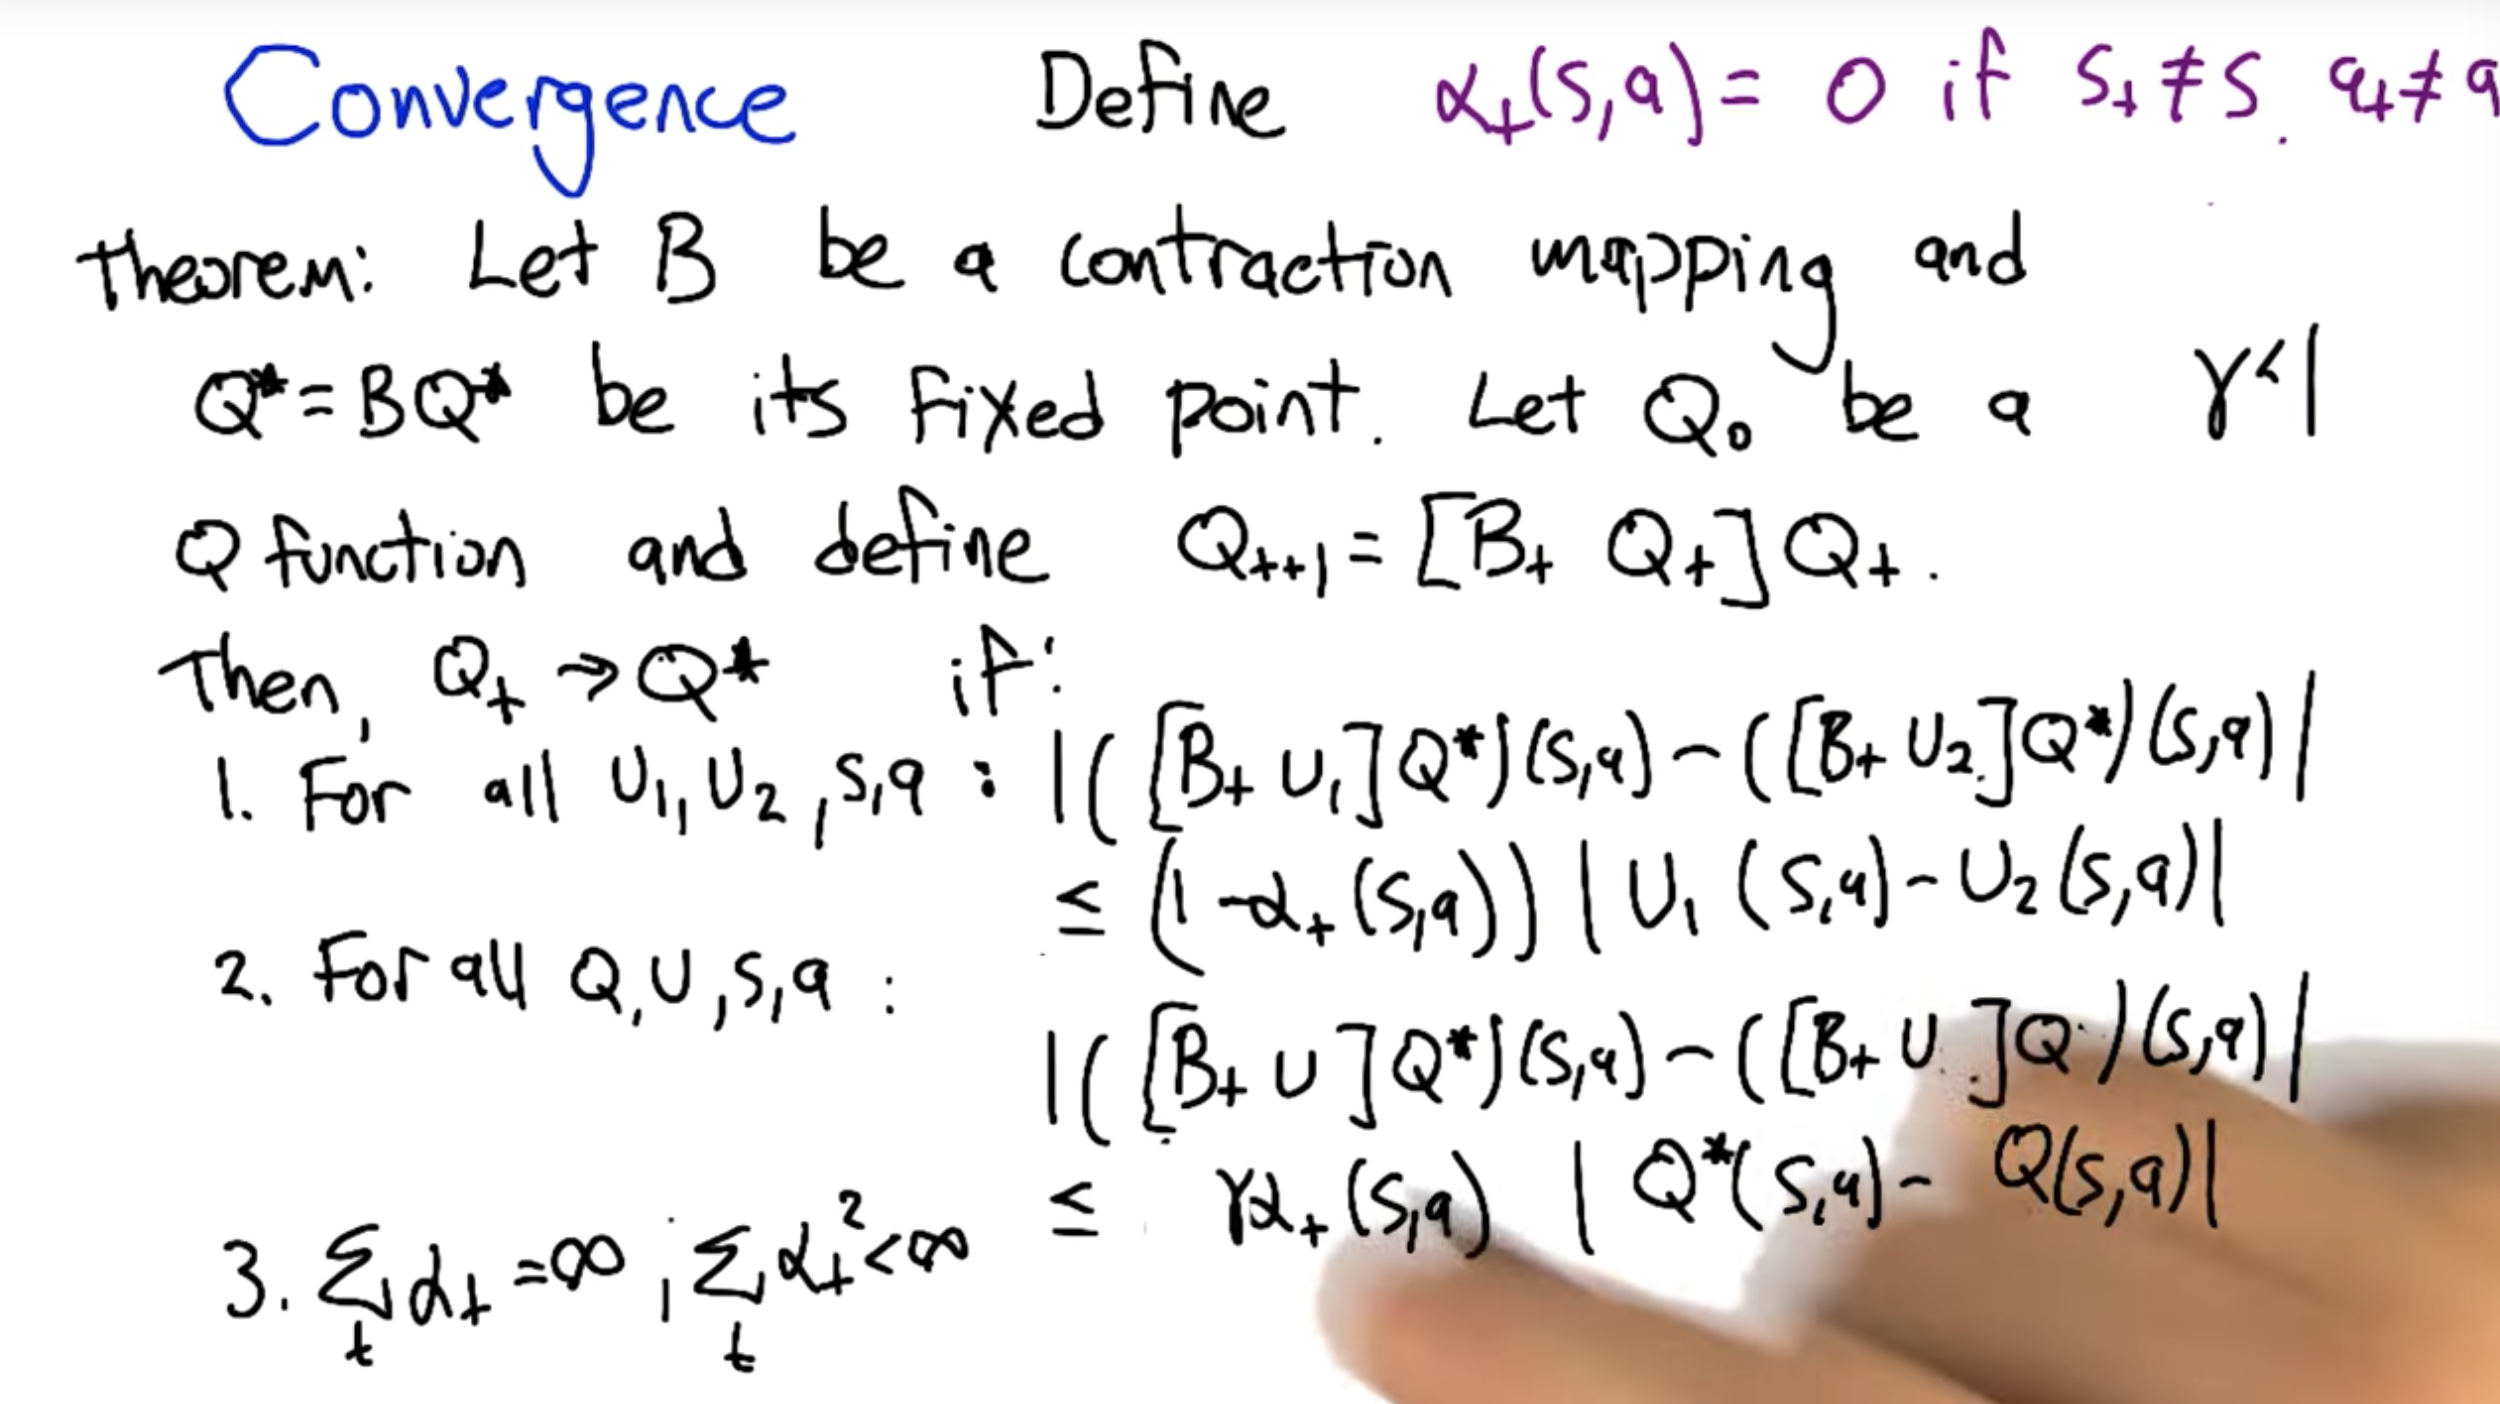 Convergence Define α_t(s,a) = 0 if s_t ≠ s. a_t ≠ a
Theorem: Let B be a contraction mapping and
Q* = BQ* be its fixed point. Let Q_0 be a γ < 1
Q function and define Q_{t+1} = [B_t Q_t] Q_t.
Then, Q_t → Q* if:
1. For all U_1, U_2, s,a : |([B_t U_1]Q*)(s,a) - ([B_t U_2]Q*)(s,a)|
≤ (1 - α_t(s,a)) |U_1(s,a) - U_2(s,a)|
2. For all Q, U, s, a :
|([B_t U]Q*)(s,a) - ([B_t U]Q)(s,a)|
≤ γα_t(s,a) |Q*(s,a) - Q(s,a)|
3. Σ_t α_t = ∞, Σ_t α_t² < ∞